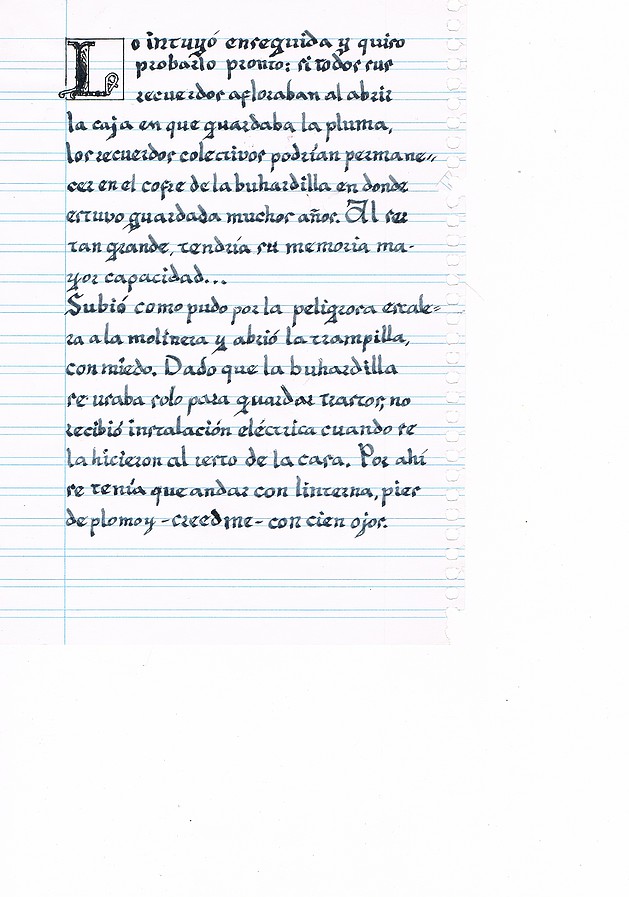 Lo intuyó enseguida y quiso
probarlo pronto: si todos sus
recuerdos afloraban al abrir
la caja en que guardaba la pluma,
los recuerdos colectivos podrían permane=
cer en el cofre de la buhardilla en donde
estuvo guardada muchos años. Al ser
tan grande, tendría su memoria ma-
yor capacidad...
Subió como pudo por la peligrosa escale=
ra a la molinera y abrió la trampilla,
con miedo. Dado que la buhardilla
se usaba solo para guardar trastos, no
recibió instalación eléctrica cuando se
la hicieron al resto de la casa. Por ahí
se tenía que andar con linterna, pies
de plomo y -creedme- con cien ojos.